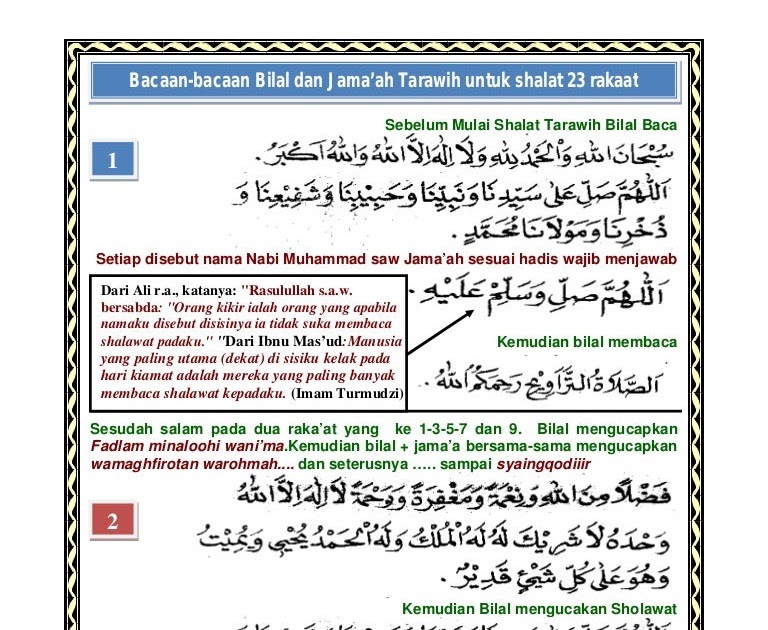 Bacaan-bacaan Bilal dan Jama'ah Tarawih untuk shalat 23 rakaat
Sebelum Mulai Shalat Tarawih Bilal Baca
1
سُبْحَانَ اللهِ وَالْحَمْدُ لِلّٰهِ وَلَا إِلٰهَ إِلَّا اللهُ وَاللهُ أَكْبَرُ.
اَللّٰهُمَّ صَلِّ عَلٰى سَيِّدِنَا وَنَبِيِّنَا وَحَبِيْبِنَا وَشَفِيْعِنَا وَ
ذُخْرِنَا وَمَوْلَانَا مُحَمَّدٍ.
Setiap disebut nama Nabi Muhammad saw Jama'ah sesuai hadis wajib menjawab
اَللّٰهُمَّ صَلِّ وَسَلِّمْ عَلَيْهِ.
Dari Ali r.a., katanya: "Rasulullah s.a.w.
bersabda: "Orang kikir ialah orang yang apabila
namaku disebut disisinya ia tidak suka membaca
shalawat padaku." "Dari Ibnu Mas'ud:Manusia
yang paling utama (dekat) di sisiku kelak pada
hari kiamat adalah mereka yang paling banyak
membaca shalawat kepadaku. (Imam Turmudzi)
Kemudian bilal membaca
اَلصَّلَاةُ التَّرَاوِيْحِ رَحِمَكُمُ اللهُ.
Sesudah salam pada dua raka'at yang ke 1-3-5-7 dan 9. Bilal mengucapkan
Fadlam minaloohi wani'ma.Kemudian bilal + jama'a bersama-sama mengucapkan
wamaghfirotan warohmah.... dan seterusnya ..... sampai syaingqodiiir
2
فَضْلًا مِنَ اللهِ وَنِعْمَةً وَمَغْفِرَةً وَرَحْمَةً لَا إِلٰهَ إِلَّا اللهُ
وَحْدَهُ لَا شَرِيْكَ لَهُ لَهُ الْمُلْكُ وَلَهُ الْحَمْدُ يُحْيِيْ وَيُمِيْتُ
وَهُوَ عَلٰى كُلِّ شَيْئٍ قَدِيْرٌ.
Kemudian Bilal mengucakan Sholawat